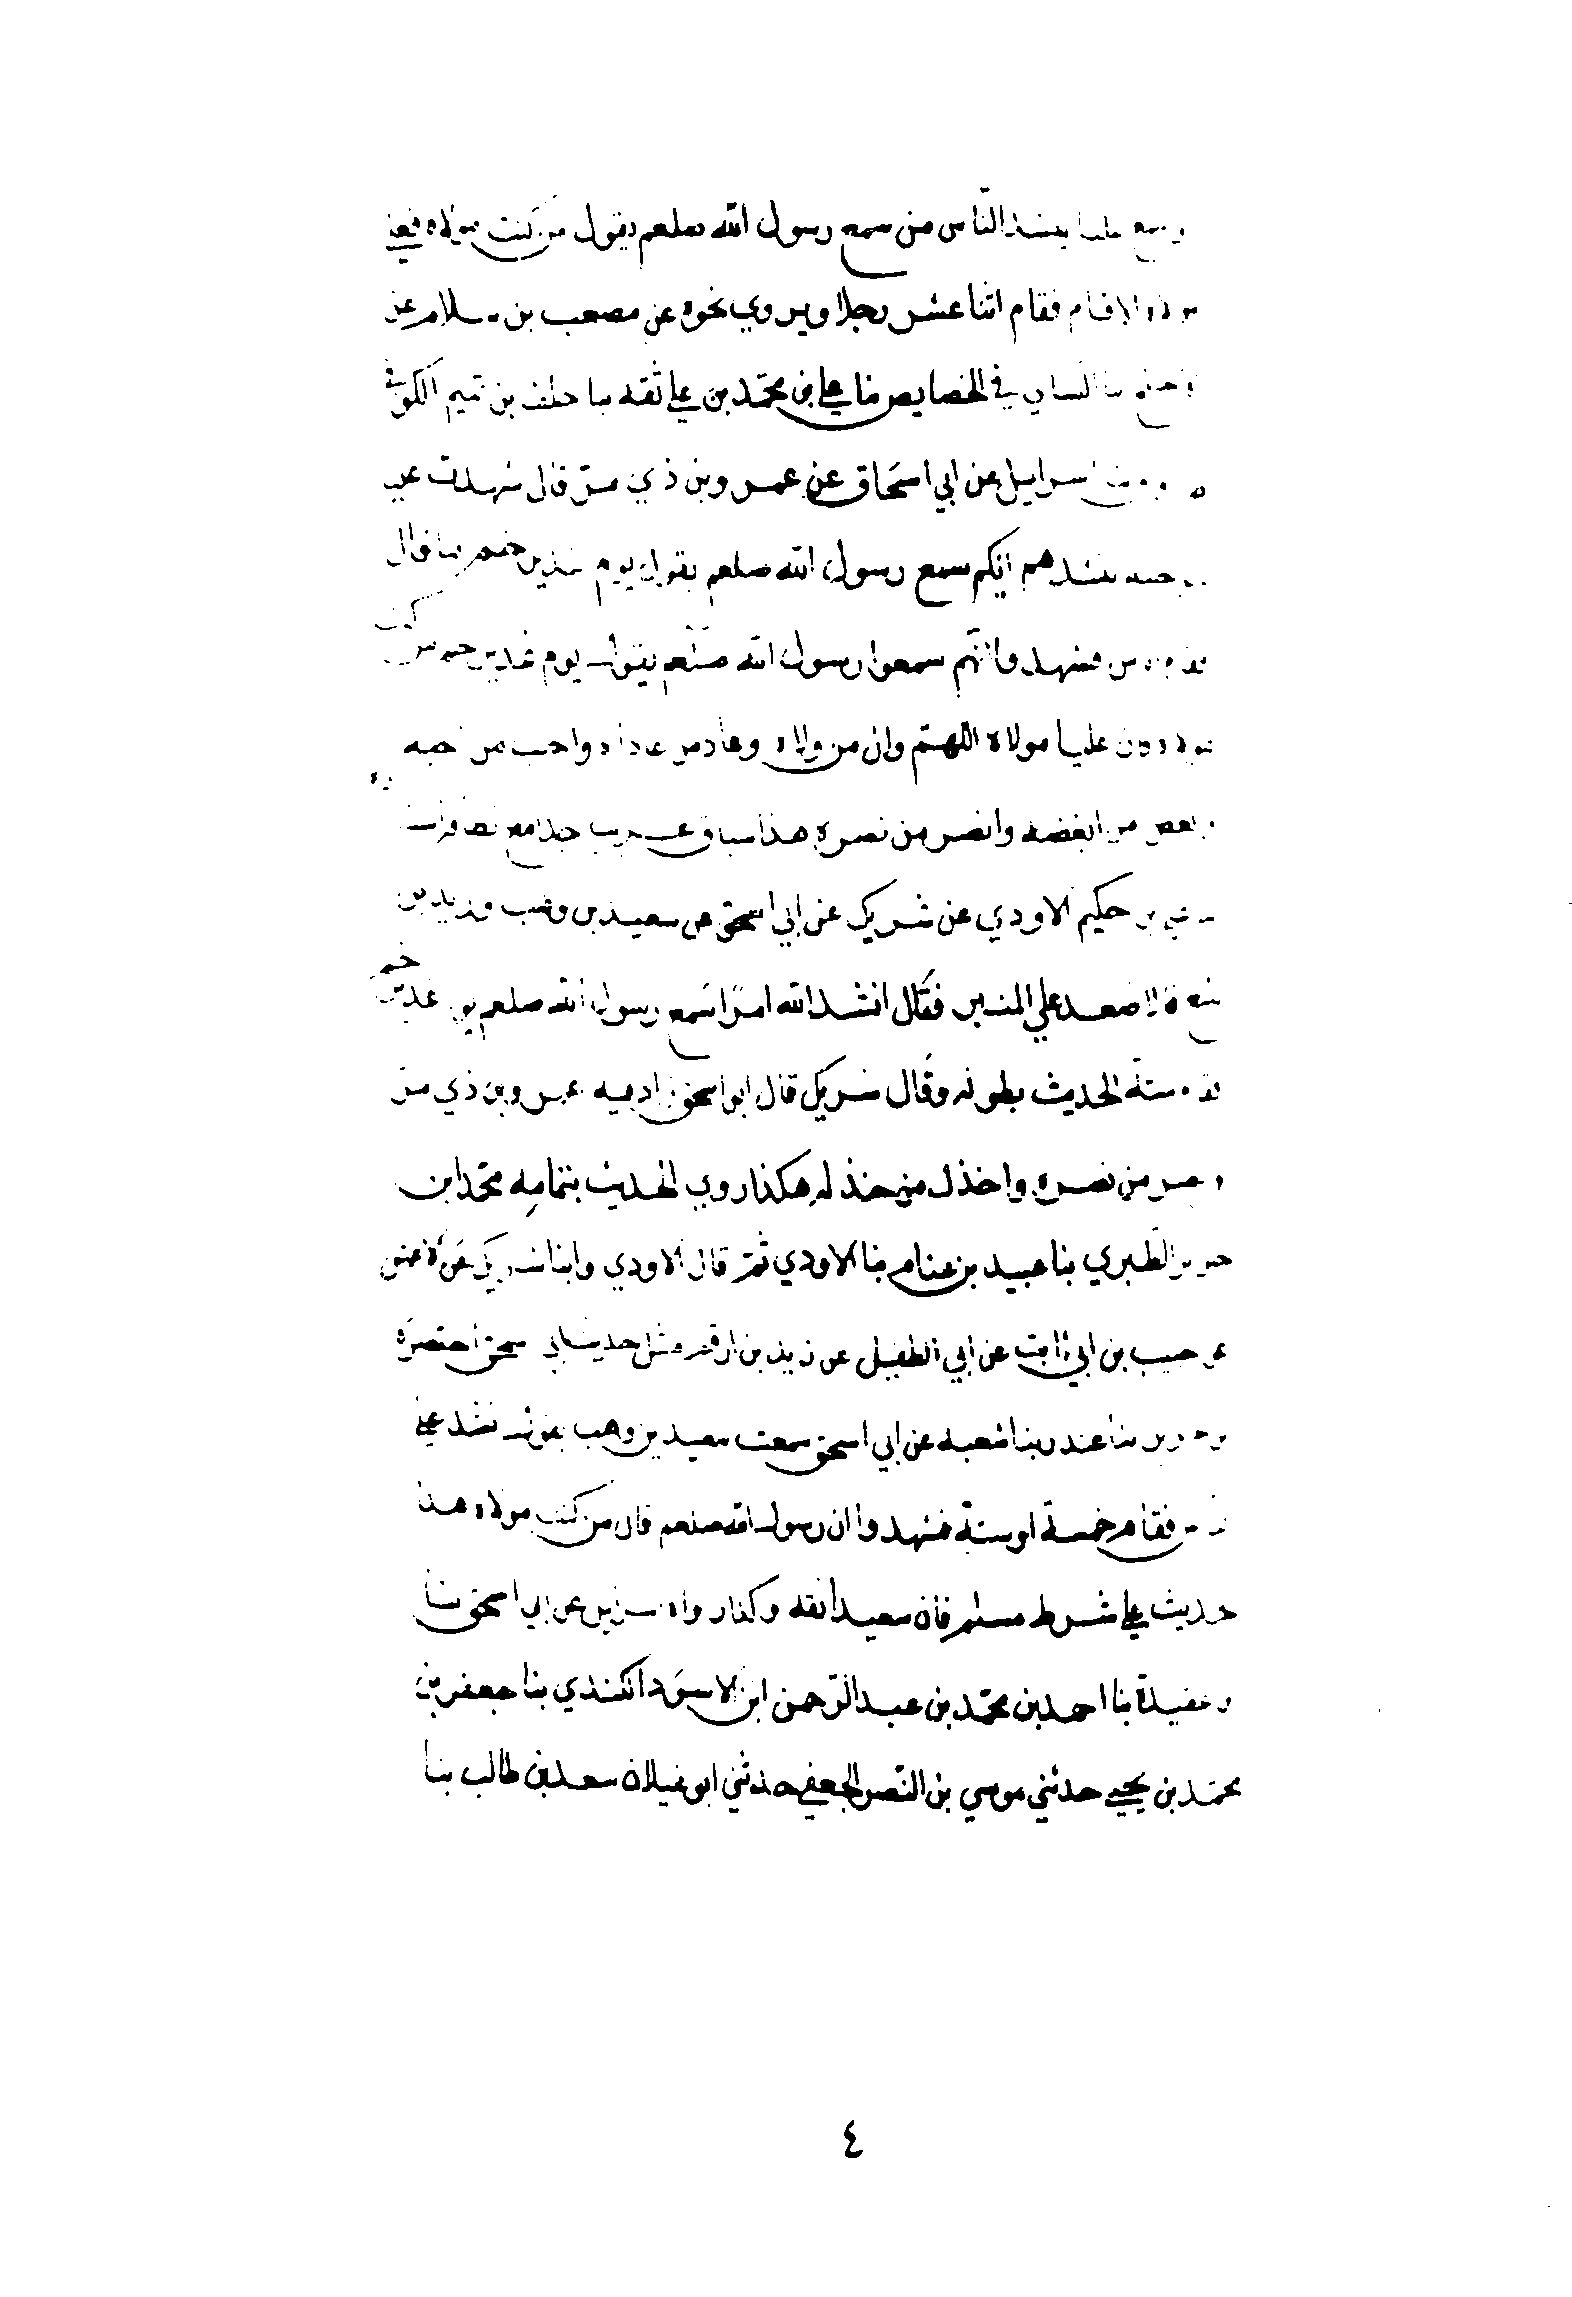 وسمع عليا ينشد الناس من سمع رسول الله صلعم يقول من كنت مولاه فعلي
مولاه الا قام فقام اثنا عشر رجلا ويروي نحوه عن مصعب بن سلام عن
بنا النساي في الخصايص بنا علي بن محمد بن علي ثقه بنا خلف بن تميم الكوفي
اسراييل عن ابي اسحاق عن عمرو بن ذي مر قال شهدت علي
ينشدهم ايكم سمع رسول الله صلعم يقول يوم غدير خم ما قال
فقام اناس فشهدوا انهم سمعوا رسول الله صلعم يقول يوم غدير خم من كنت
مولاه فان عليا مولاه اللهم وال من والاه وعاد من عاداه واحب من احبه
وابغض من ابغضه وانصر من نصره هذا سياق غريب جدا
علي بن حكيم الاودي عن شريك عن ابي اسحق عن سعيد بن وهب وزيد بن
يثيع قالا صعد علي المنبر فقال انشد الله امرا سمع رسول الله صلعم يوم غدير خم
فقام ستة الحديث بطوله وقال شريك قال ابو اسحق زاد فيه عمرو بن ذي مر
وانصر من نصره واخذل من خذله هكذا روي الحديث بتمامه محمد ابن
جرير الطبري بنا عبيد بن غنام بنا الاودي ثم قال الاودي وانبانا شريك عن الاعمش
عن حبيب بن ابي ثابت عن ابي الطفيل عن زيد بن ارقم مثل حديث ابي اسحق اختصره
بنا غندر بنا شعبه عن ابي اسحق سمعت سعيد بن وهب يقول نشد علي
الناس فقام خمسة او ستة فشهدوا ان رسول الله صلعم قال من كنت مولاه هذا
حديث علي شرط مسلم فان سعيدا ثقه وكذا رواه اسراييل عن ابي اسحق بنا
عقيدة بنا احمد بن محمد بن عبد الرحمن ابن الاسود الكندي بنا جعفر بن
محمد بن يحيي حدثني موسي بن النضر الجعفي حدثني ابو غيلان سعد بن طالب بنا
٤